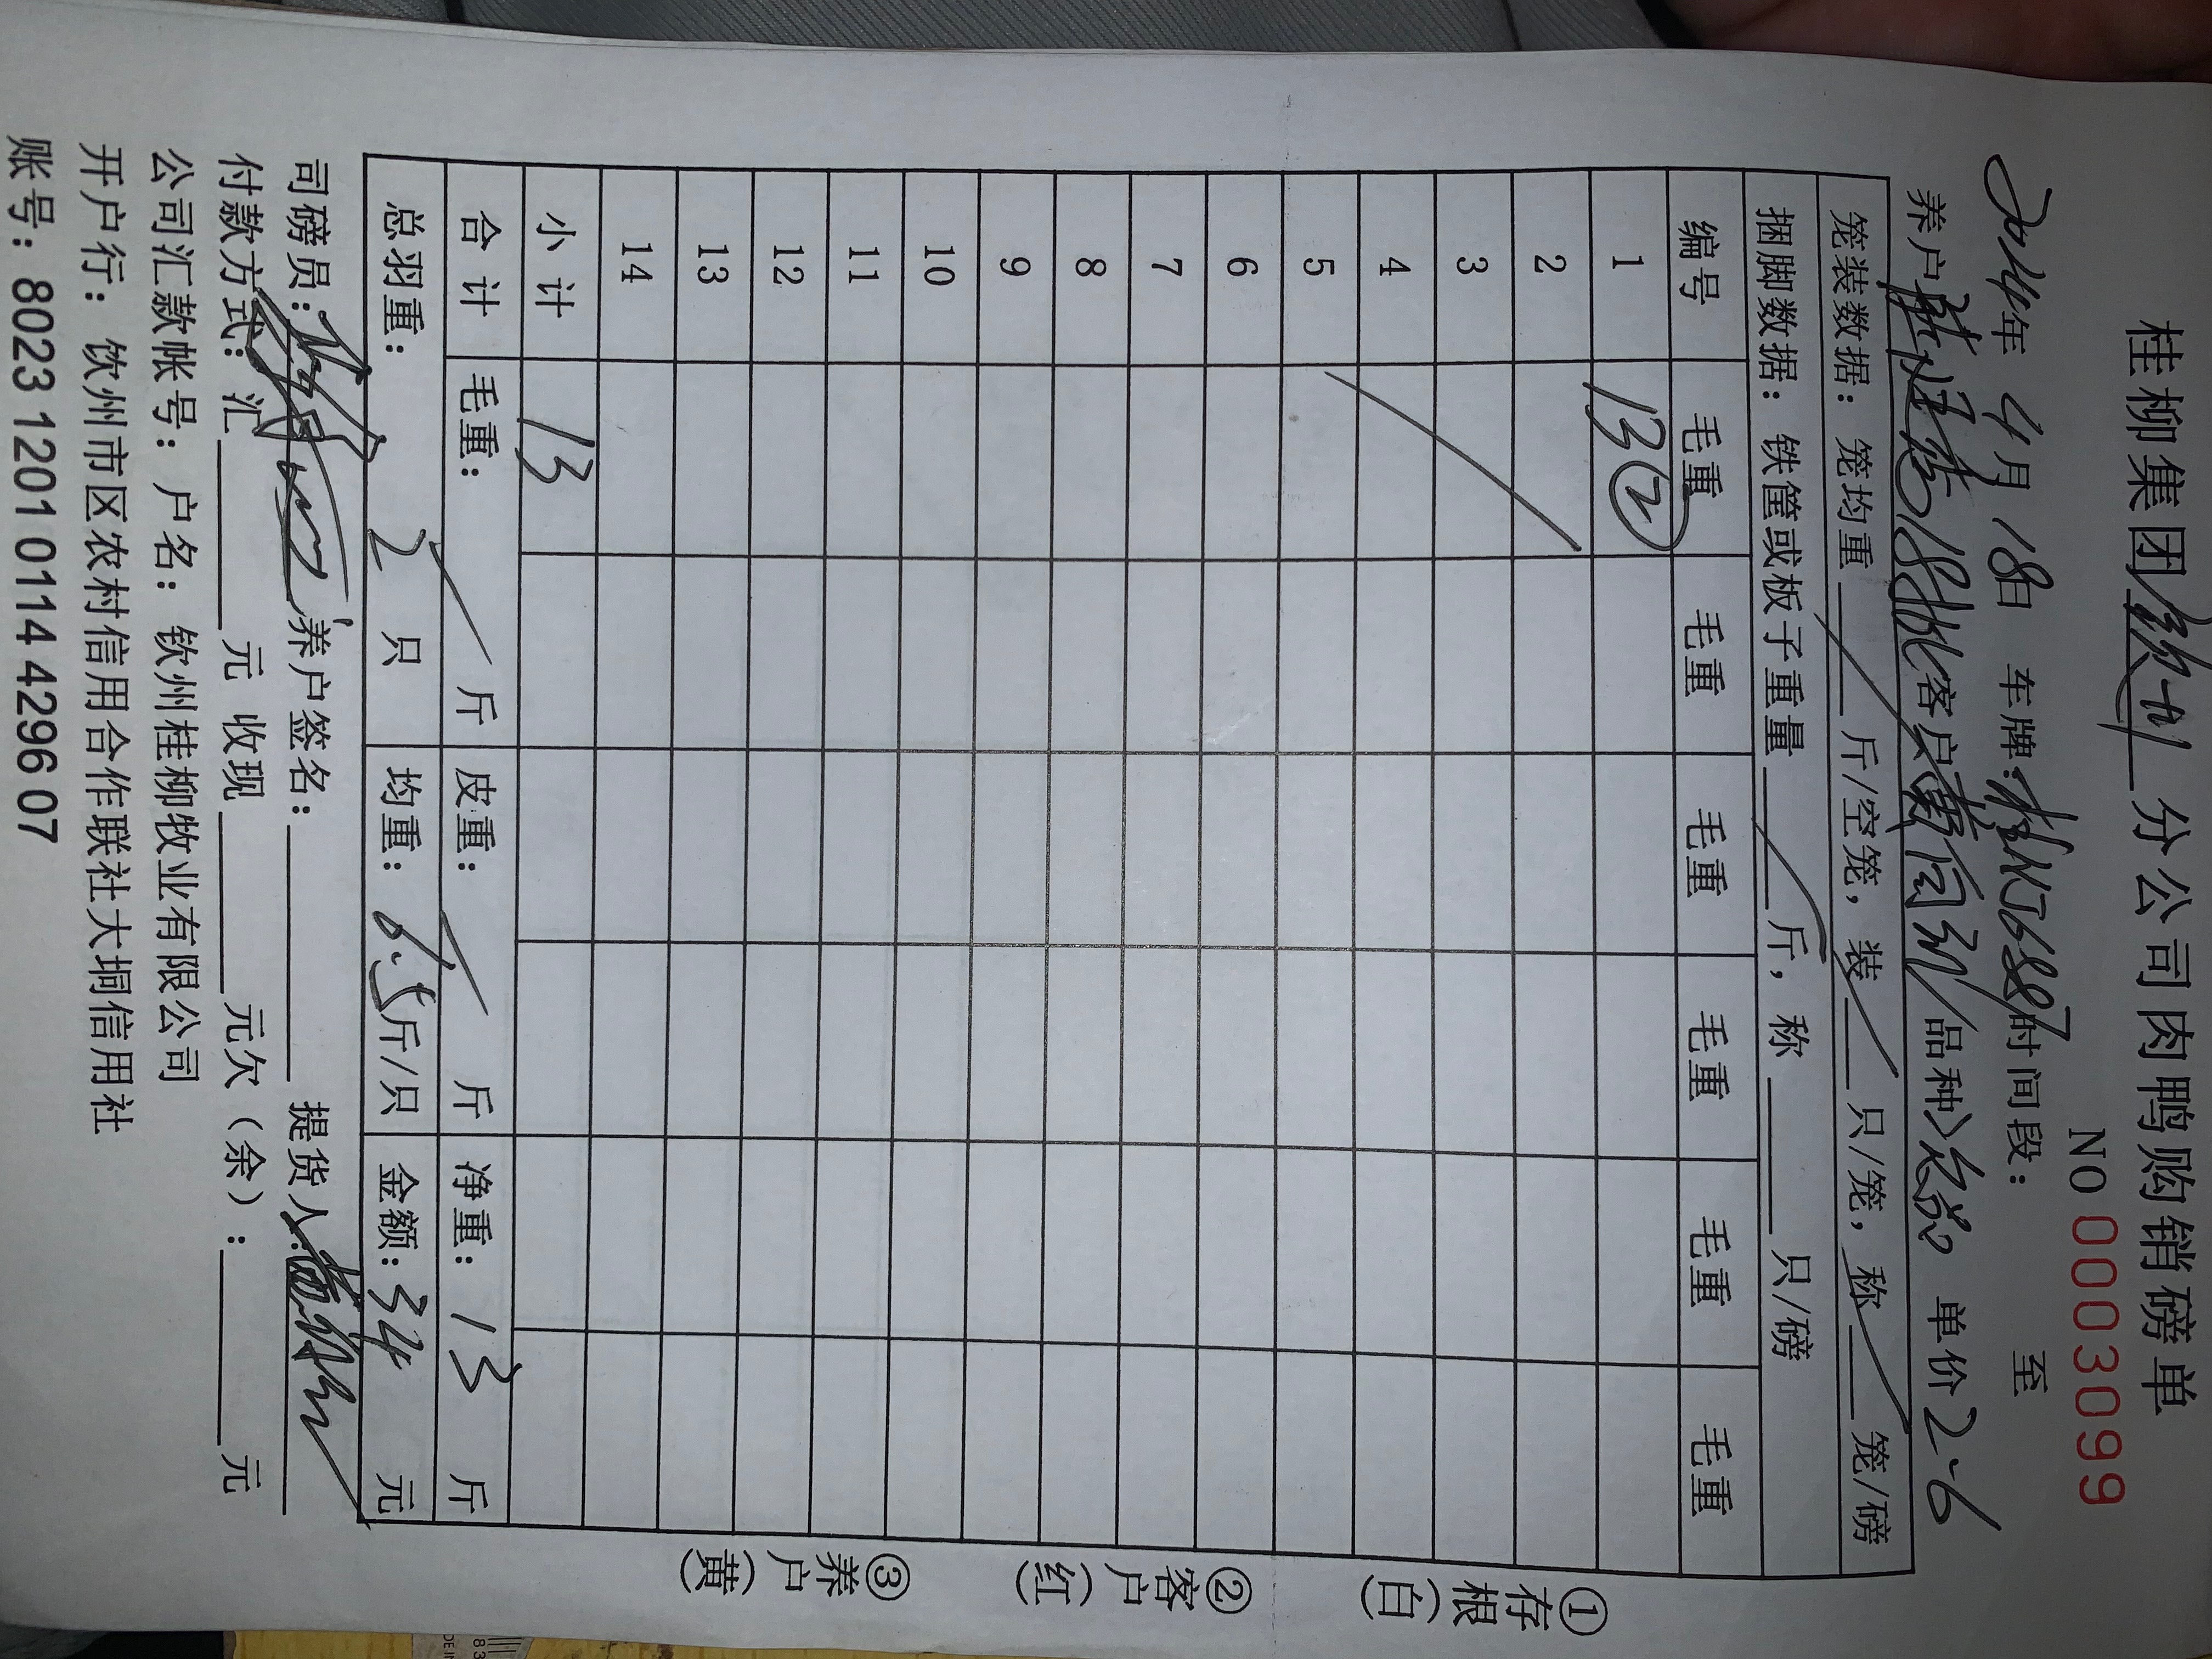 桂柳集团钦州分公司肉鸭购销磅单
NO 0003099
4月18日 车牌:桂NJ6887时间段: 至
养户 18批客户黄 品种 单价2.6
笼装数据: 笼均重 斤/空笼, 装 只/笼, 称 笼/磅
捆脚数据: 铁筐或板子重量 斤, 称 只/磅
编号 毛重 毛重 毛重 毛重 毛重 毛重
1 13②
2
3
4
5
6
7
8
9
10
11
12
13
14
小计 13
合计 毛重: 斤 皮重: 斤 净重: 13 斤
总羽重: 2 只 均重: 6.5斤/只 金额: 34 元
司磅员: 养户签名: 提货人:
付款方式: 汇 元 收现 元欠(余): 元
公司汇款帐号: 户名: 钦州桂柳牧业有限公司
开户行: 钦州市区农村信用合作联社大垌信用社
账号: 8023 1201 0114 4296 07
①存根(白)
②客户(红)
③养户(黄)